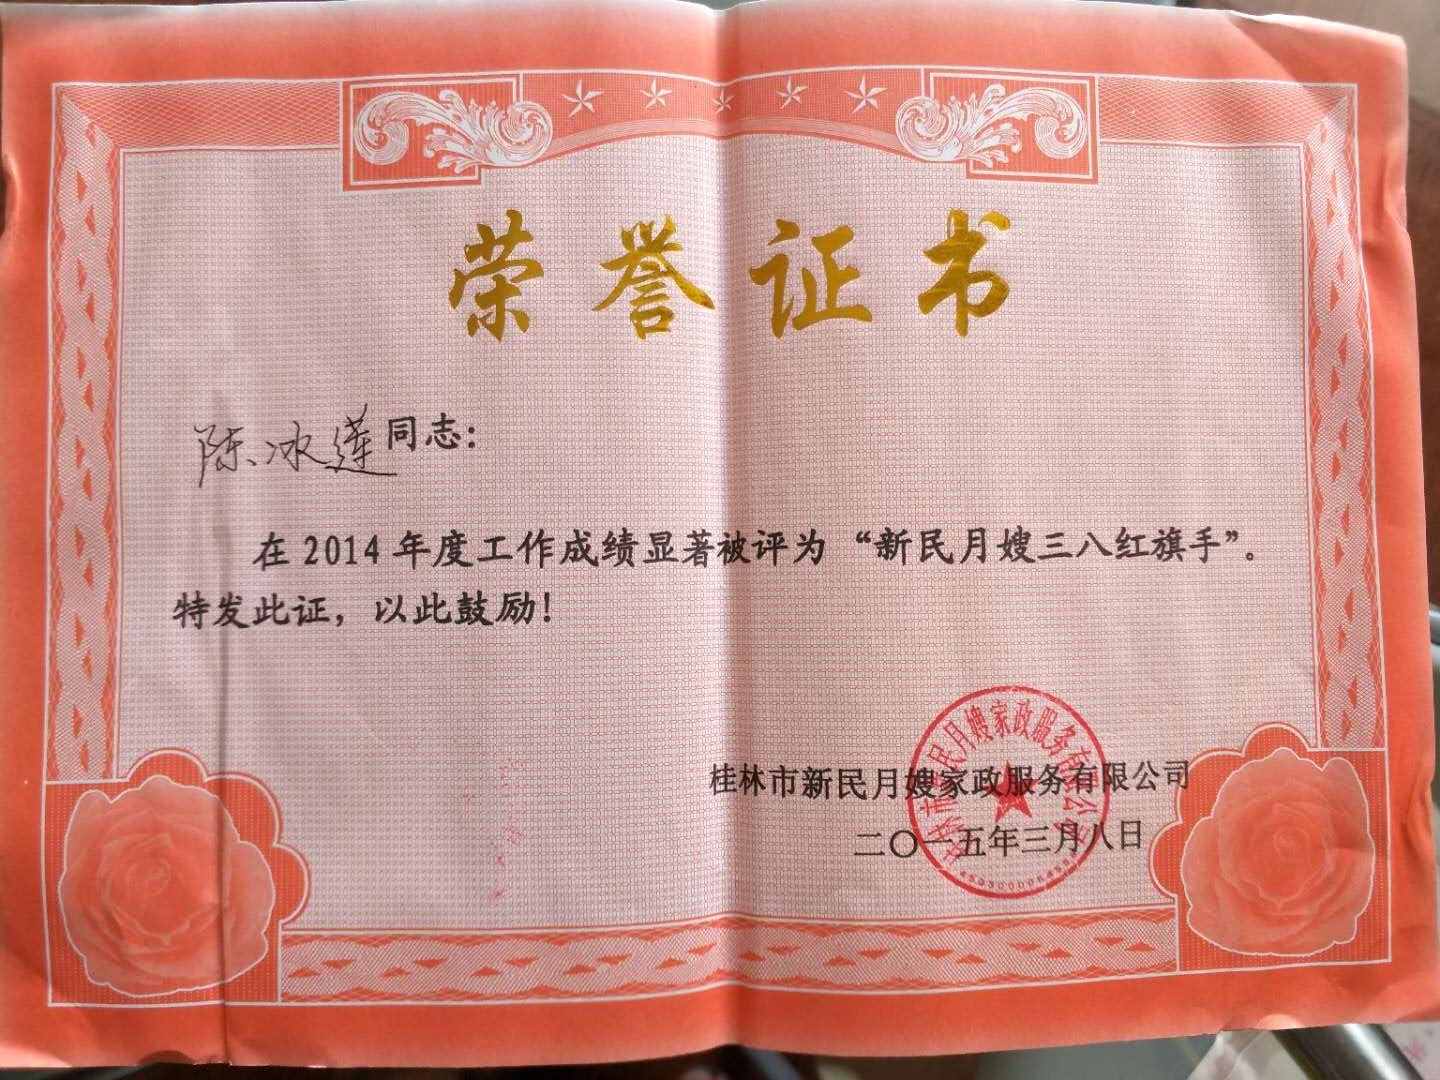 荣誉证书
陈冰莲同志：
在2014年度工作成绩显著被评为“新民月嫂三八红旗手”。
特发此证，以此鼓励！
桂林市新民月嫂家政服务有限公司
二〇一五年三月八日
桂林市新民月嫂家政服务有限公司